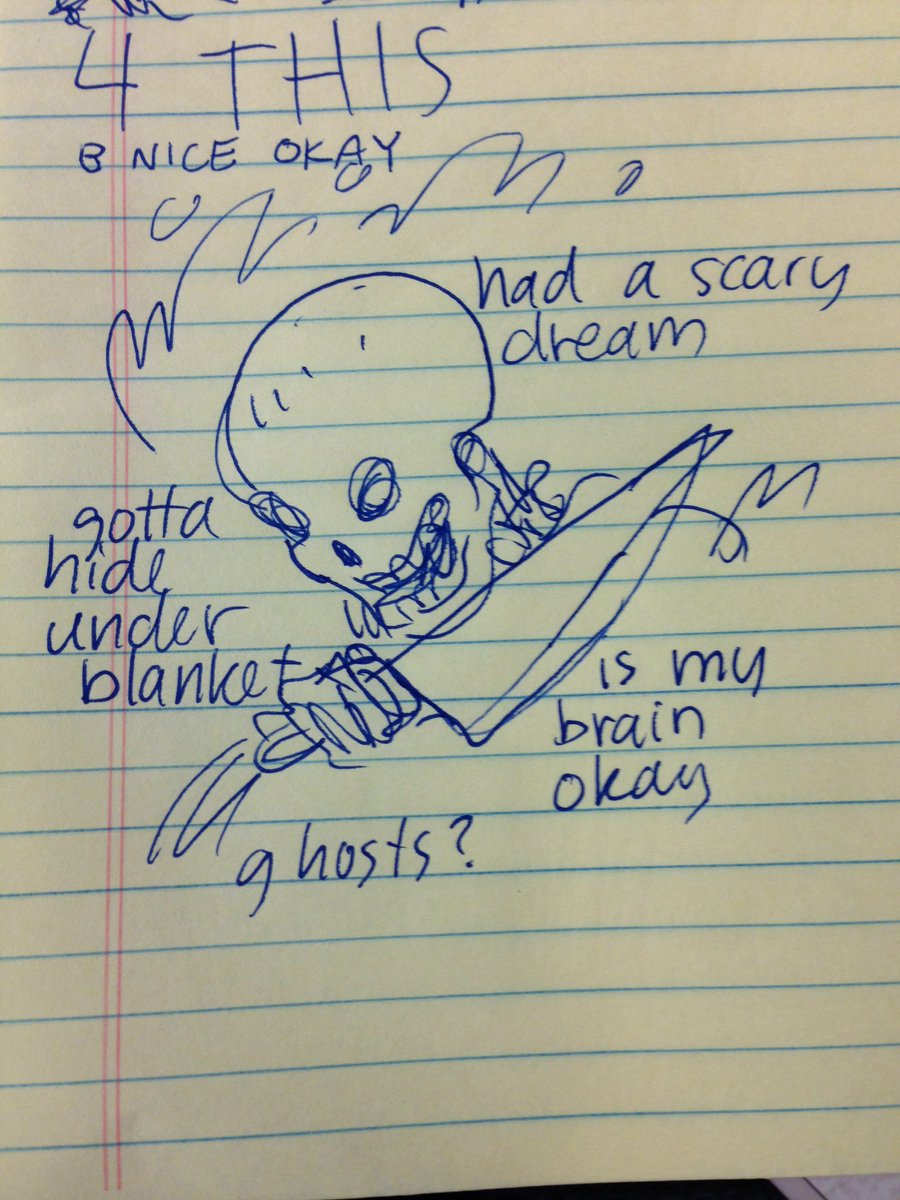 4 THIS
B NICE OKAY
had a scary
dream
gotta
hide
under
blanket
is my
brain
okay
ghosts?